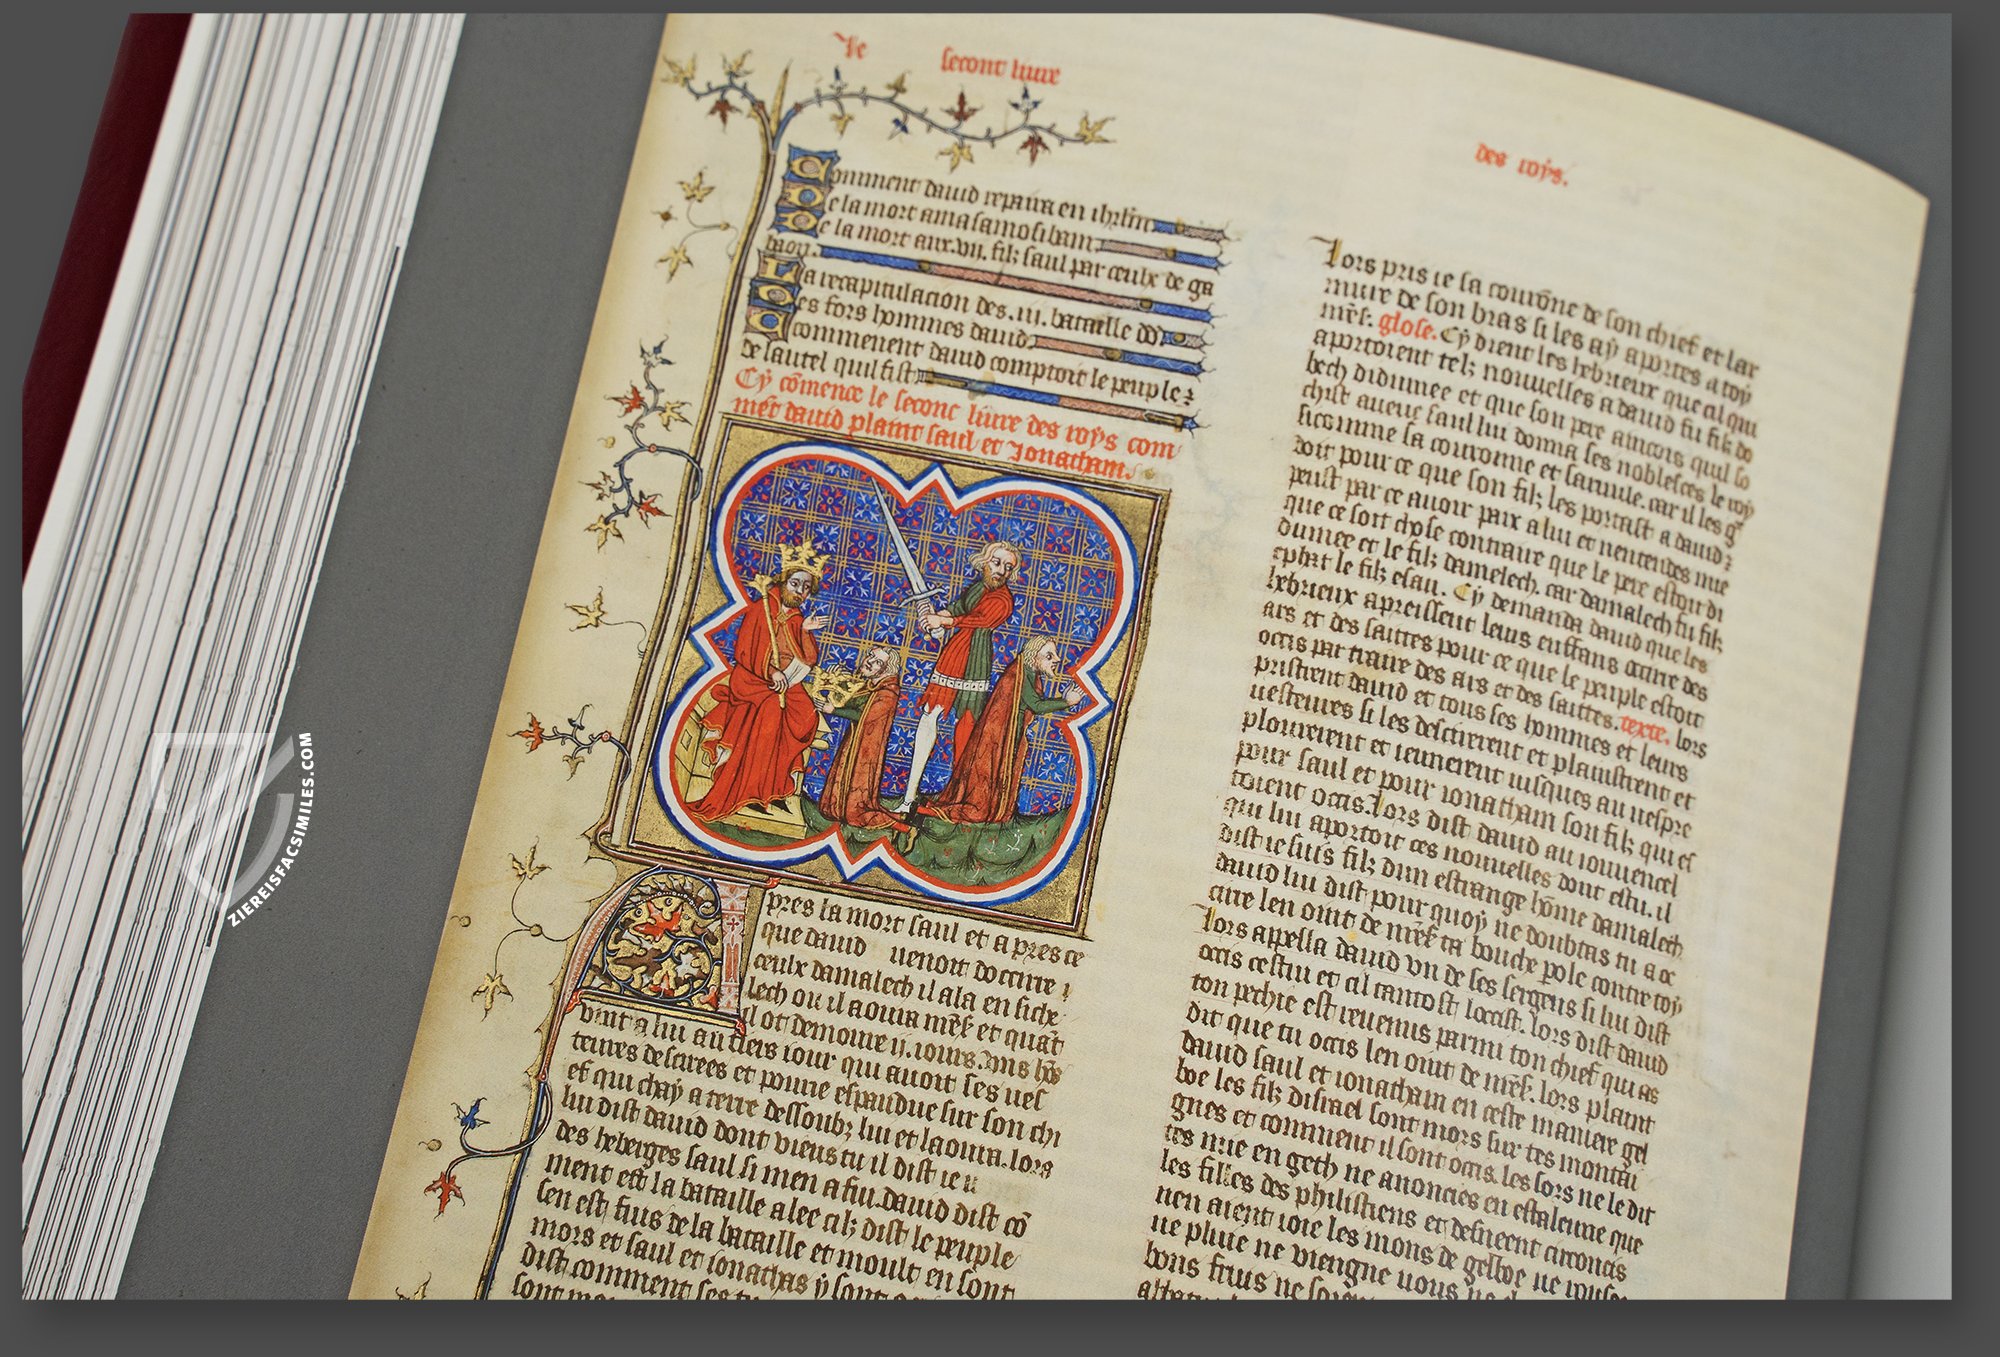 Le second livre
des roys.
Comment david repaira en ihrlm
De la mort amasa mosiham
De la mort aux .vii. filz saul par ceulx de ga
baon.
La recapitulacion des .iii. bataille dd
Des fors hommes david
Commenent david comptoit le peuple ⁊
de lautel quil fist
Cy cōmence le second livre des roys com
mēt david plaint saul et Jonatham.
Apres la mort saul et apres ce
que david venoit doccire
ceulx damalech il ala en siche
lech ou il avoit
il ot demoure .ii. iours.
vint a lui au tiers iour qui avoit ses ves
teures descirees et poune espandue sur son chi
ef qui chay a terre dessoubz lui et laoura. lors
lui dist david dont viens tu il dist ie
des heberges saul si men afui. david dist cō
ment est la bataille alee cilz dist le peuple
sen est fuis de la bataille et moult en sont
mors et saul et ionathas y sont
dist comment
Lors pris ie sa courōne de son chief et lar
mure de son bras si les ay aportes a toy
glose. Cy dient les hebrieux que cil qui
aportoient telz nouvelles a david fu filz do
bech didumee et que son pere aincois quil
saul lui donna ses noblesces le roy
si comme sa couronne et sarmile. car il les
doit pour ce que son filz les portast a david ⁊
peust par ce avoir paix a lui et nentendes mie
que ce soit chose contraire que le pere estoit di
dumee et le filz damelech. car damalech fu filz
eliphat le filz esau. Cy demanda david que les
hebrieux apreissent leurs enffans a traire des
ars et des saittes pour ce que le peuple estoit
occis par traire des ars et des saittes. texte. lors
pristrent david et tous ses hommes et leurs
vesteures si les descirerent et plainstrent et
plourerent et ieunerent iusques au vespre
pour saul et pour ionatham son filz qui es
toient occis. Lors dist david au iouvencel
qui lui aportoit ces nouvelles dont es tu. il
dist ie suis filz dun estrange hōme damalech
david lui dist pour quoy ne doubtas tu a oc
cirre len oint de
Lors appella david un de ses sergens si lui dist
occis cestui et cil tantost loccist. lors dist david
ton pechie est revenus parmi ton chief qui as
dit que tu occis len oint de lors plaint
david saul et ionatham en ceste maniere gel
boe les filz disrael sont mors sur tes montai
gnes et comment il sont occis. les fors ne le dit
tes mie en geth ne anoncies en escaleune que
les filles des philistiens et desneent circoncis
nen aient ioie les mons de gelboe ne rousee
ne pluie ne viengne
bons fruis ne
ZIEREISFACSIMILES.COM